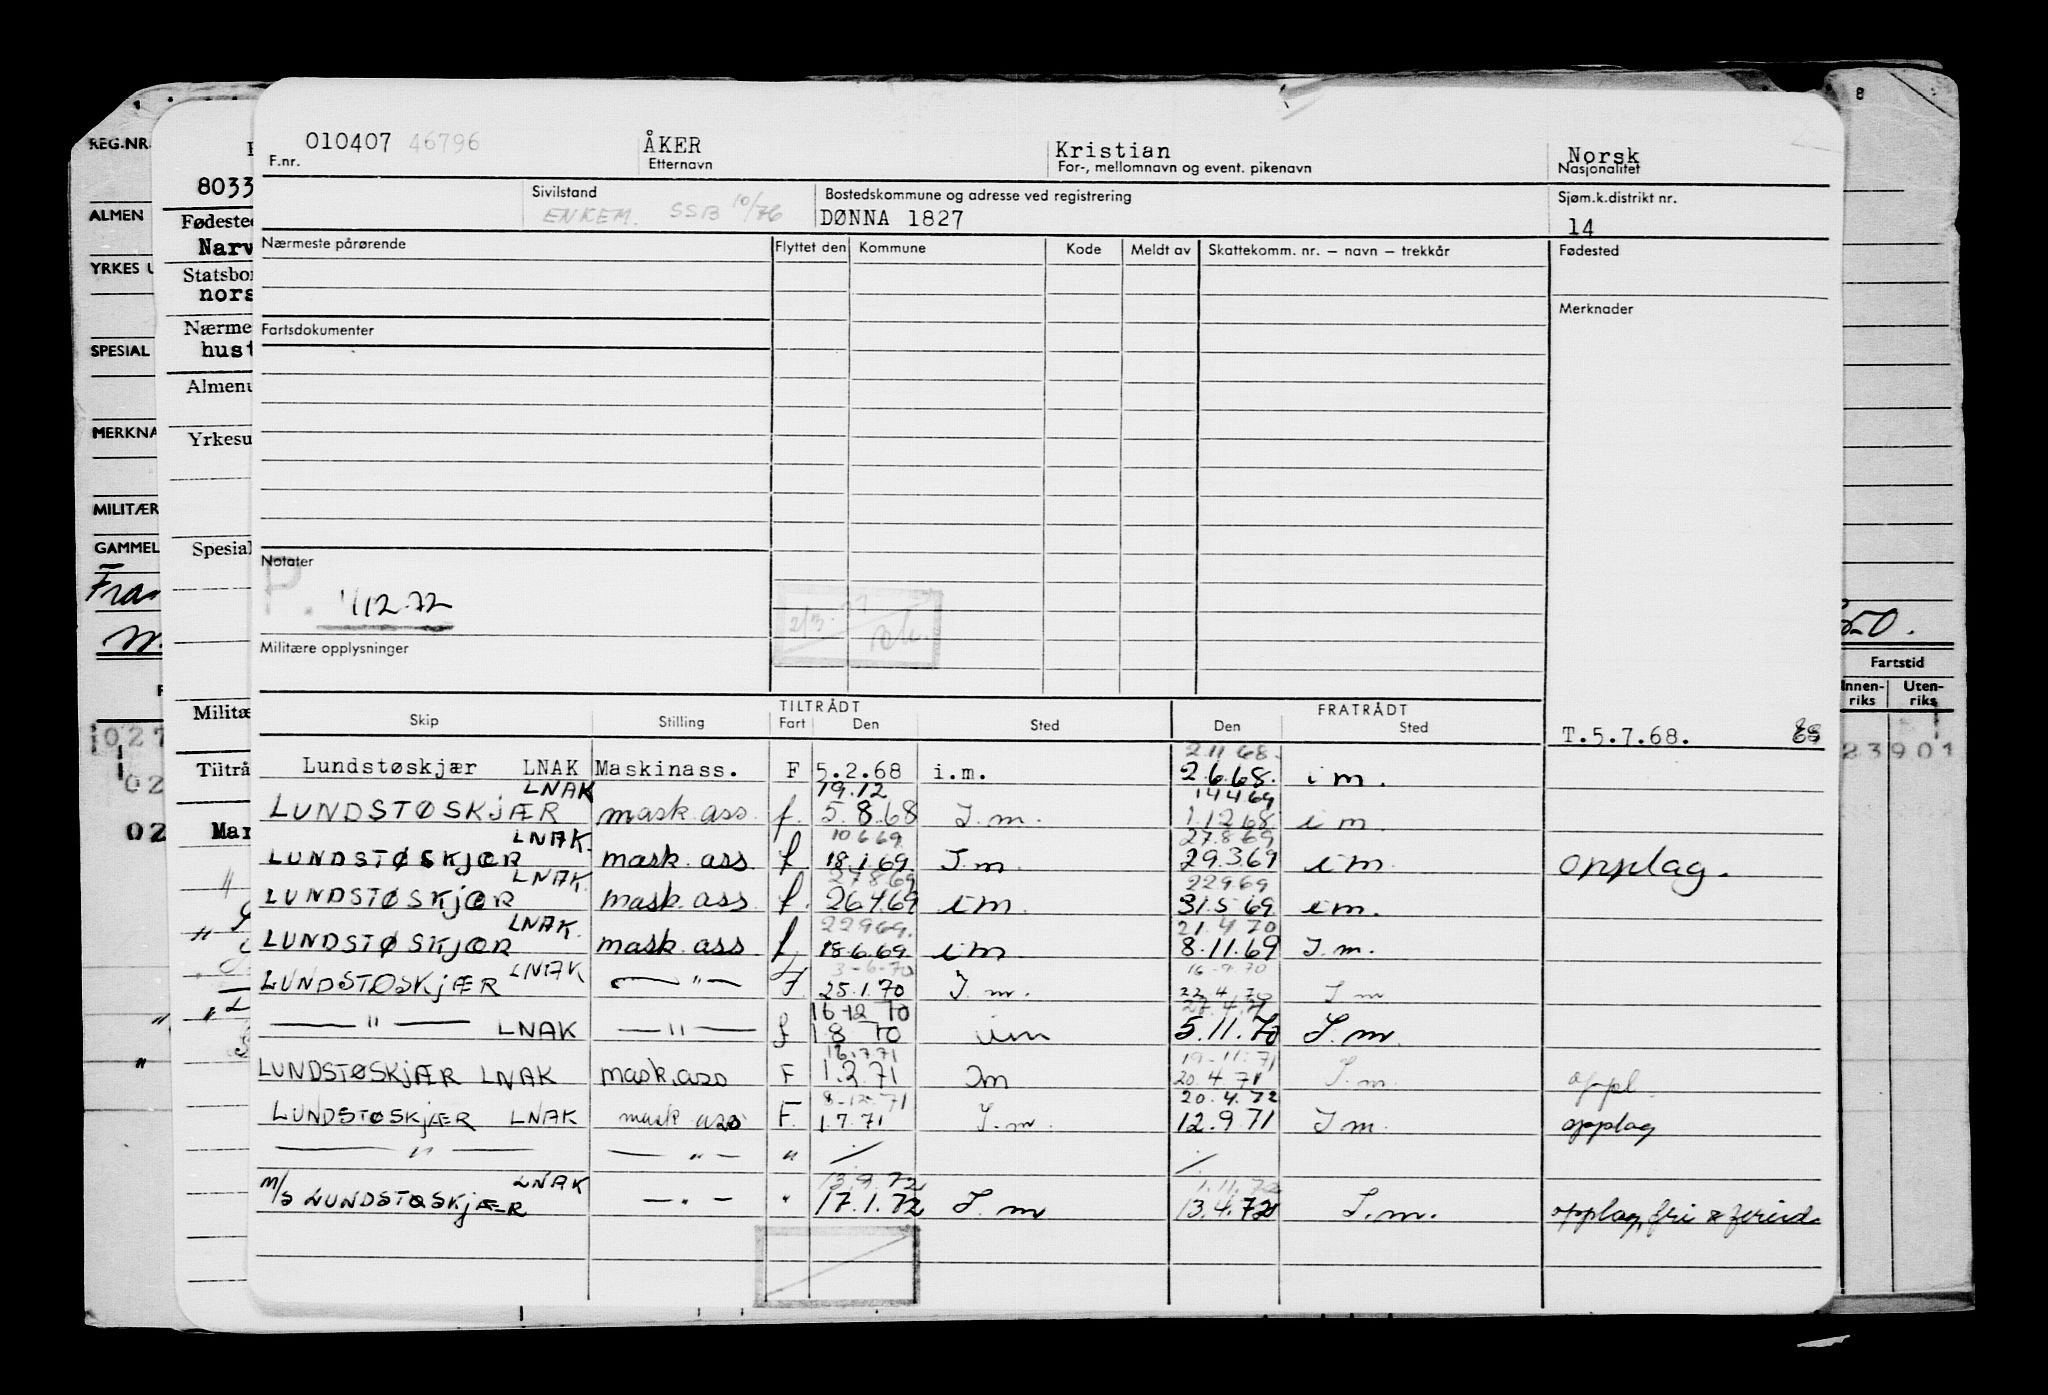 010407 46796 ÅKER Kristian Norsk
F.nr. Etternavn For-, mellomnavn og event. pikenavn Nasjonalitet
Sivilstand Bostedskommune og adresse ved registrering Sjøm.k.distrikt nr.
ENKEM. SSB 10/76 DØNNA 1827 14
Nærmeste pårørende Flyttet den Kommune Kode Meldt av Skattekomm. nr. — navn — trekkår Fødested
Merknader
Fartsdokumenter
Notater
P. 1/12.72
Militære opplysninger
TILTRÅDT FRATRÅDT
Skip Stilling Fart Den Sted Den Sted
T.5.7.68.
2.11 68.
Lundstøskjær LNAK Maskinass. F 5.2.68 i.m. 2.6.68. i m.
LNAK 19.12 14.4.69
LUNDSTØSKJÆR mask. ass. f. 5.8.68 I.m. 1.12 68 i m.
LNAK. 10 6 69 27.8.69
LUNDSTØSKJÆR mask. ass f 18.1.69 I.m 29.3.69 i m opplag.
LNAK. 27.8.69 22969
LUNDSTØSKJÆR mask. ass f. 26.4.69 i m. 31.5.69 i m.
LNAK. 22969. 21.4.70
LUNDSTØSKJÆR mask ass f. 18.6.69 i m 8.11.69 I.m.
LNAK 3-6-70 16.9.70
LUNDSTØSKJÆR — " — F. 25.1.70 I.m. 22.4.70 I m
16 12 70
— " — LNAK — " — f 1 8 70 im 5.11.70 I.m
16.7.71 19-11.71
LUNDSTØSKJÆR LNAK mask.ass F 1.2.71 Im 20.4.71 I.m. oppl
8-12.71 20.4.72
LUNDSTØSKJÆR LNAK mask ass F. 1.7.71 I.m. 12.9.71 I m. opplag
— " — — " — " / /
LNAK 13.9.72 1.11.72
m/s LUNDSTØSKJÆR — " — " 17.1.72 I.m 13.4.72 I.m. opplag, fri &
REG.NR.
8033
ALMEN
Fødested
Narv
YRKES U
Statsbor
nors
Nærme
hust
SPESIAL
Almenu
MERKNA
Yrkesu
MILITÆR
GAMMEL
Spesial
Fra
Militæ
Tiltrå
027
02
02 Mar
8
50.
Fartstid
Innen- Uten-
riks riks
23901